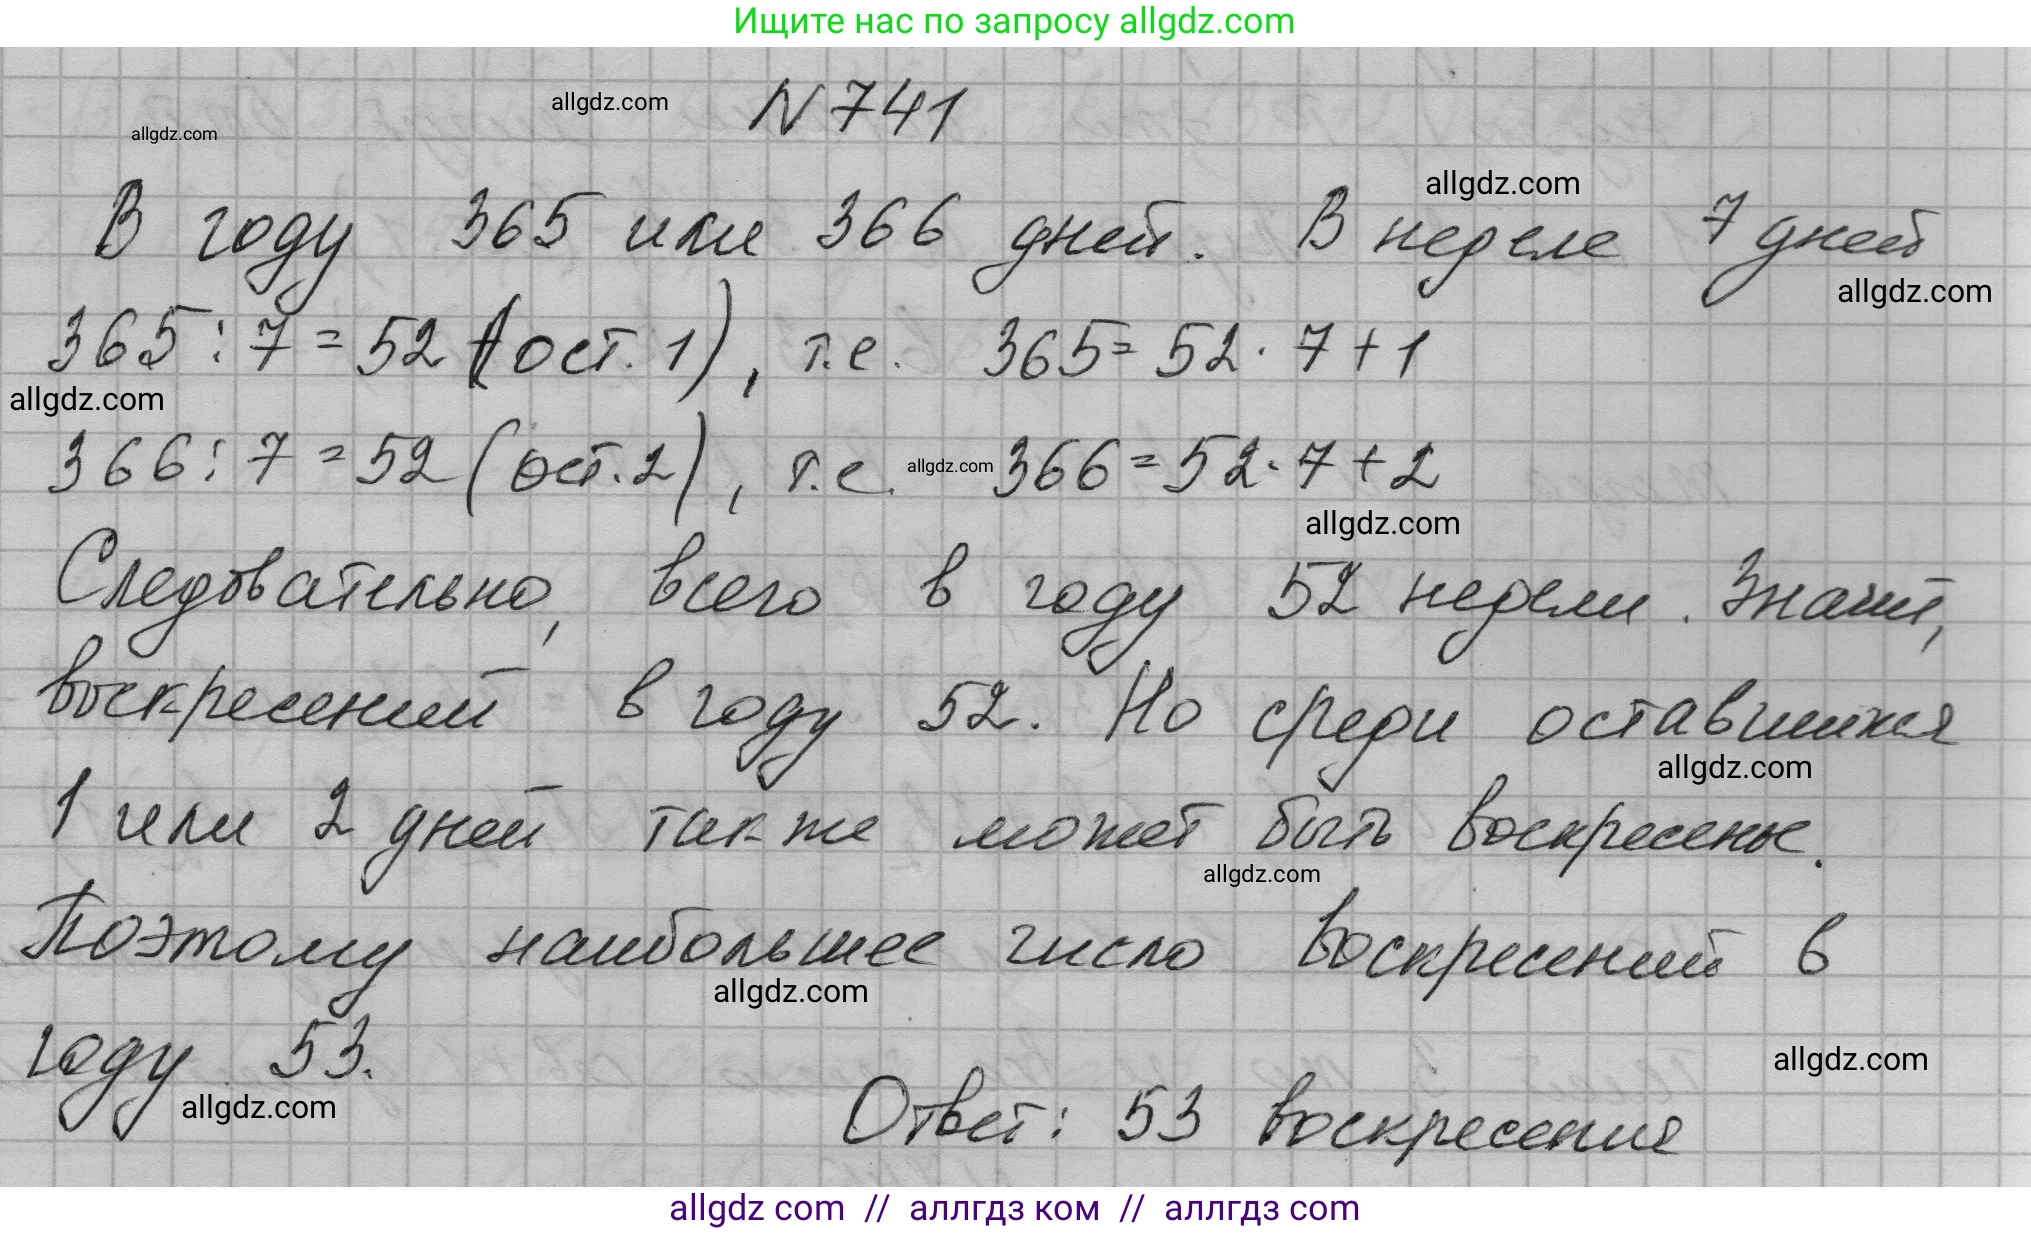 Ищите нас по запросу allgdz.com
allgdz.com allgdz.com N 741
В году 365 или 366 дней. В неделе 7 дней
allgdz.com
allgdz.com
365 : 7 = 52 (ост. 1), т.е. 365 = 52 · 7 + 1
allgdz.com
366 : 7 = 52 (ост. 2), т.е. allgdz.com 366 = 52 · 7 + 2
allgdz.com
Следовательно, всего в году 52 недели. Значит,
воскресений в году 52. Но среди оставшихся
allgdz.com
1 или 2 дней также может быть воскресенье.
allgdz.com
Поэтому наибольшее число воскресений в
allgdz.com
году 53.
allgdz.com
allgdz.com
Ответ: 53 воскресения
allgdz com // аллгдз ком // аллгдз com